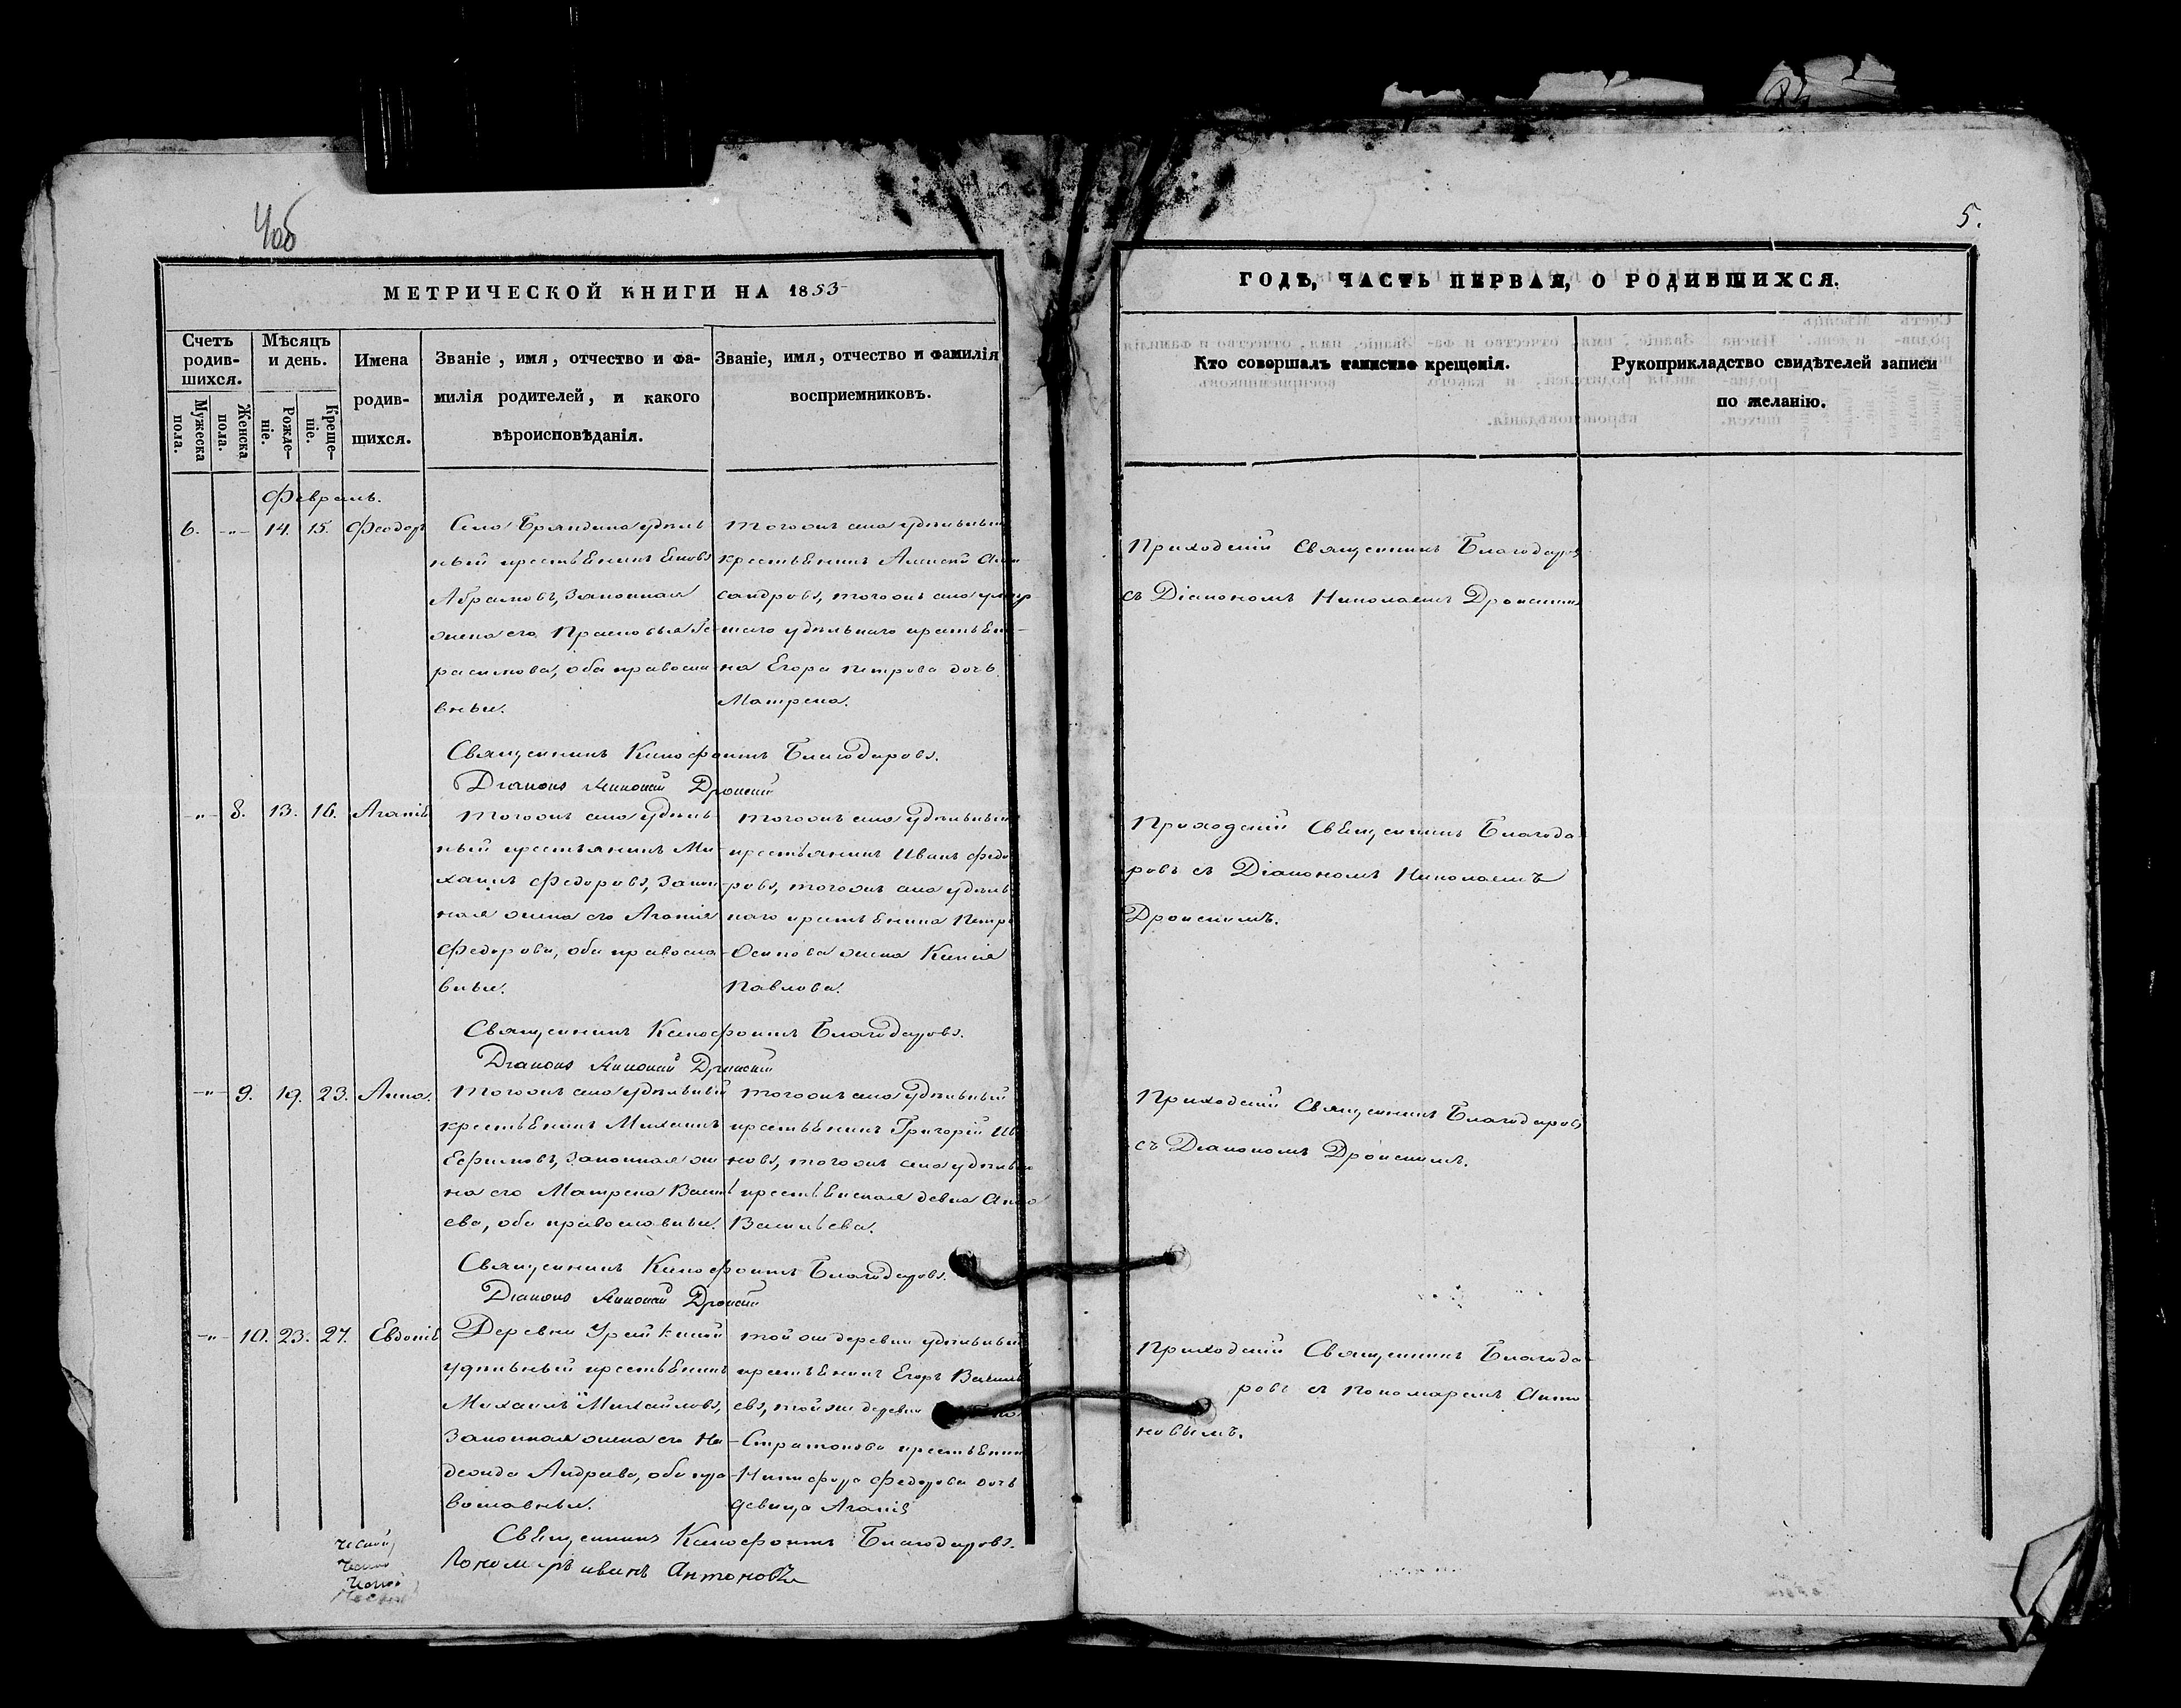 4об
5.
МЕТРИЧЕСКОЙ КНИГИ НА 1853
ГОДЪ, ЧАСТЬ ПЕРВАЯ, О РОДИВШИХСЯ.
Счетъ родив-шихся.
Мужеска пола.
Женска пола.
Мѣсяцъ и день.
Рожде-ніе.
Креще-ніе.
Имена
родив-
шихся.
Званіе, имя, отчество и фа-
милія родителей, и какого
вѣроисповѣданія.
Званіе, имя, отчество и фамилія
воспріемниковъ.
Кто совершалъ таинство крещенія.
Рукоприкладство свидѣтелей записи
по желанію.
Февраль.
6. -"- 14. 15. Феодоръ
Села Бряндина удѣль
ный крестьянинъ
Абрамовъ, законная
жена его Прасковья Ге-
расимова, оба правосла
вные.
тогожъ села удѣльный
крестьянинъ Алексѣй Алек-
сандровъ, тогожъ села умер
шаго удѣльнаго крестьяни-
на Егора Петрова дочь
Матрена.
Приходскій Священникъ Благодаровъ
съ Діакономъ Николаемъ Дронскимъ
Священникъ Ксенофонтъ Благодаровъ.
Діаконъ Николай Дронскій
-"- 8. 13. 16. Агапія
тогожъ села удѣль
ный крестьянинъ Ми-
хаилъ Федоровъ, закон
ная жена его Агапія
Федорова, оба правосла-
вные.
тогожъ села удѣльный
крестьянинъ Иванъ Федо
ровъ, тогожъ села удѣль
наго крестьянина Петра
Осипова жена Ксенія
Павлова.
Приходскій Священникъ Благода
ровъ съ Діакономъ Николаемъ
Дронскимъ.
Священникъ Ксенофонтъ Благодаровъ.
Діаконъ Николай Дронскій
-"- 9. 19. 23. Анна.
тогожъ села удѣльный
крестьянинъ Михаилъ
Ефимовъ, законная же
на его Матрена Василь
ева, оба православные.
тогожъ села удѣльный
крестьянинъ Григорій Ива
новъ, тогожъ села удѣльная
крестьянская девка Анна
Васильева.
Приходскій Священникъ Благодаровъ
съ Діакономъ Дронскимъ.
Священникъ Ксенофонтъ Благодаровъ.
Діаконъ Николай Дронскій
-"- 10. 23. 27. Евдокія
Деревни Урайкиной
удѣльный крестьянинъ
Михаилъ Михайловъ,
законная жена его На-
дежда Андреева, оба пра
вославные.
той же деревни удѣльный
крестьянинъ Егоръ Василь
евъ, той же деревни
крестьянина
Никифора Федорова дочь
девица Агапія
Приходскій Священникъ Благода
ровъ съ пономаремъ Анто
новымъ.
Священникъ Ксенофонтъ Благодаровъ.
Пономарь иванъ Антоновъ